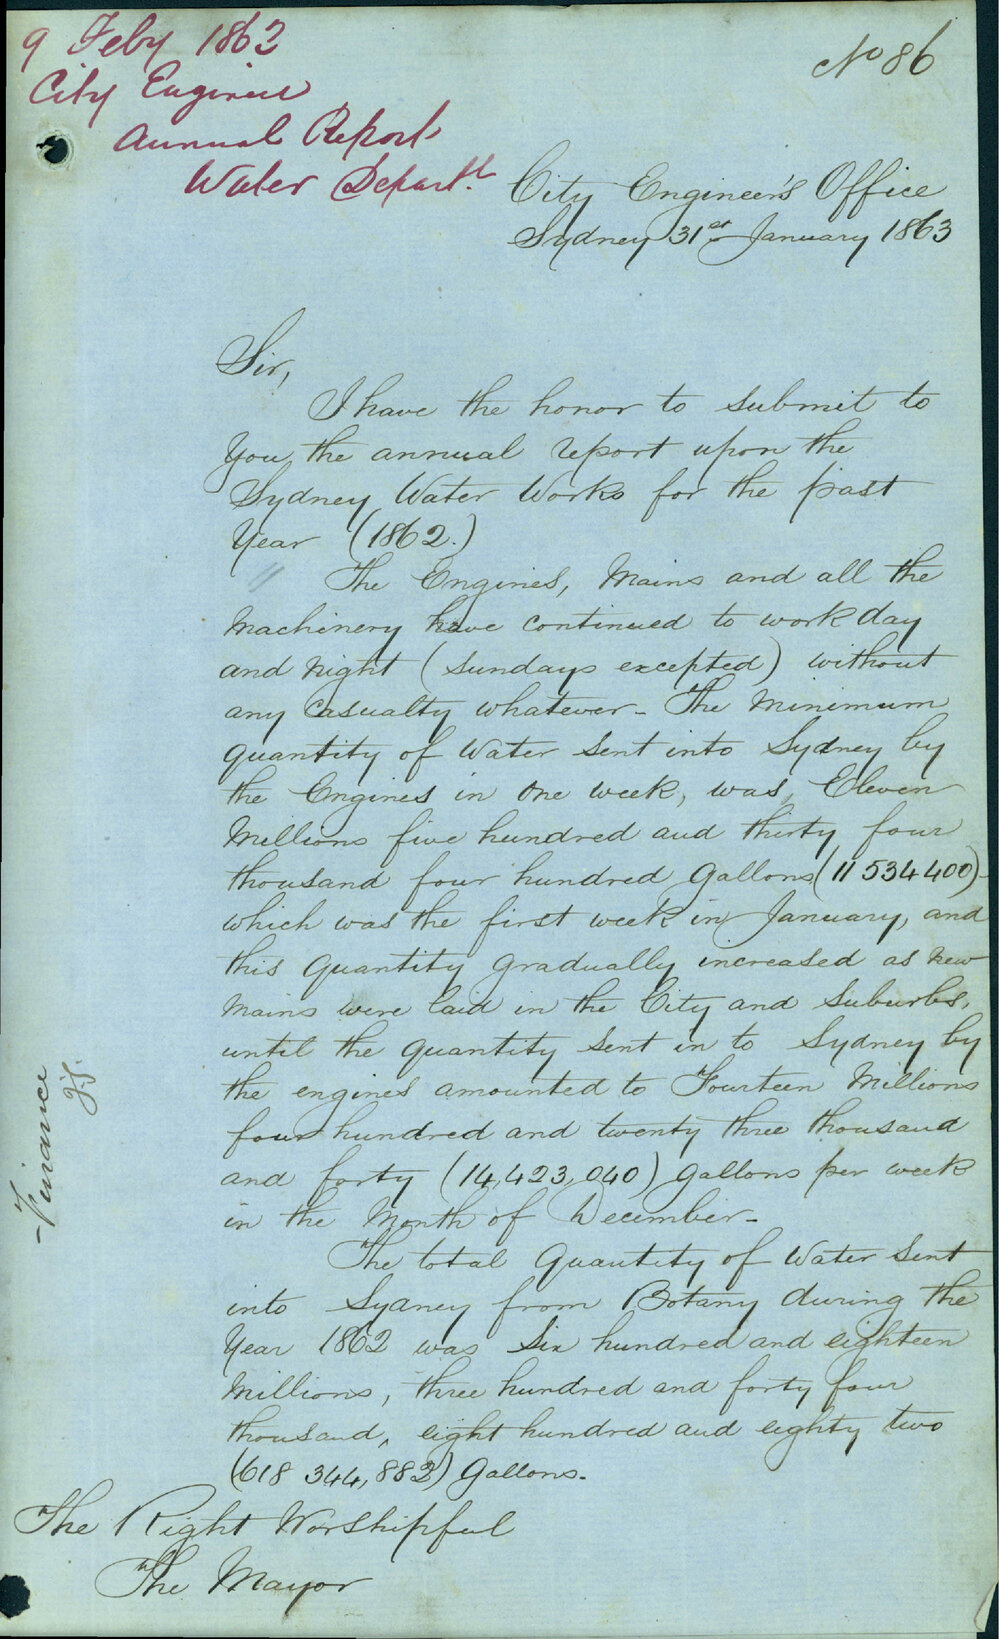 9 Feby 1863
City Engineer
Annual Report
Water Departt.
No 86
City Engineer's Office
Sydney 31st January 1863
Sir,
I have the honor to submit to
You, the annual report upon the
Sydney Water Works for the past
Year (1862.)
The Engines, Mains and all the
Machinery have continued to work day
and night (Sundays excepted) without
any Casualty whatever - The Minimum
quantity of Water Sent into Sydney by
the Engines in One week, was, Eleven
Millions five hundred and thirty four
thousand four hundred Gallons (11 534 400) -
which was the first week in January, and
this Quantity gradually increased as new
Mains were laid in the City and Suburbs,
until the quantity Sent in to Sydney by
the engines amounted to Fourteen Millions
four hundred and twenty three thousand
and forty (14,423,040) Gallons per week
in the Month of December -
The total Quantity of Water Sent
into Sydney from Botany during the
Year 1862 was Six hundred and eighteen
Millions, three hundred and forty four
thousand, eight hundred and eighty two
(618 344,882) Gallons.
The Right Worshipful
The Mayor
Finance